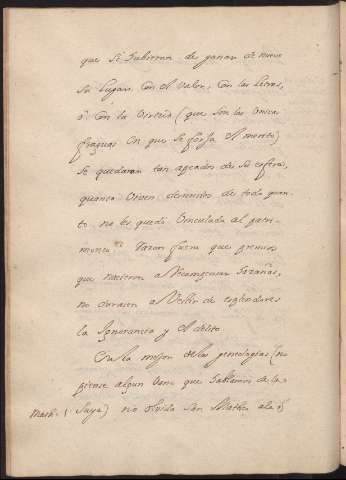 que si huvieran de ganar de nuevo
su lugar con el valor, con las letras,
ò con la virtud (que son las unicas
fraguas en que se forja el merito)
se quedaran tan apeados de su esfera,
quanto viven desnudos de todo quan-
to no les quedò vinculado al patri-
monio razon fuera que premios
que nacieron à recompensar hazañas,
no sirviesen à vestir de esplendores
la Ignorancia y el delito
En la mejor de las genealogias (no
piense algun vano que hablamos de la
Math. 1. suya) no olvida San Matheo ala q̃